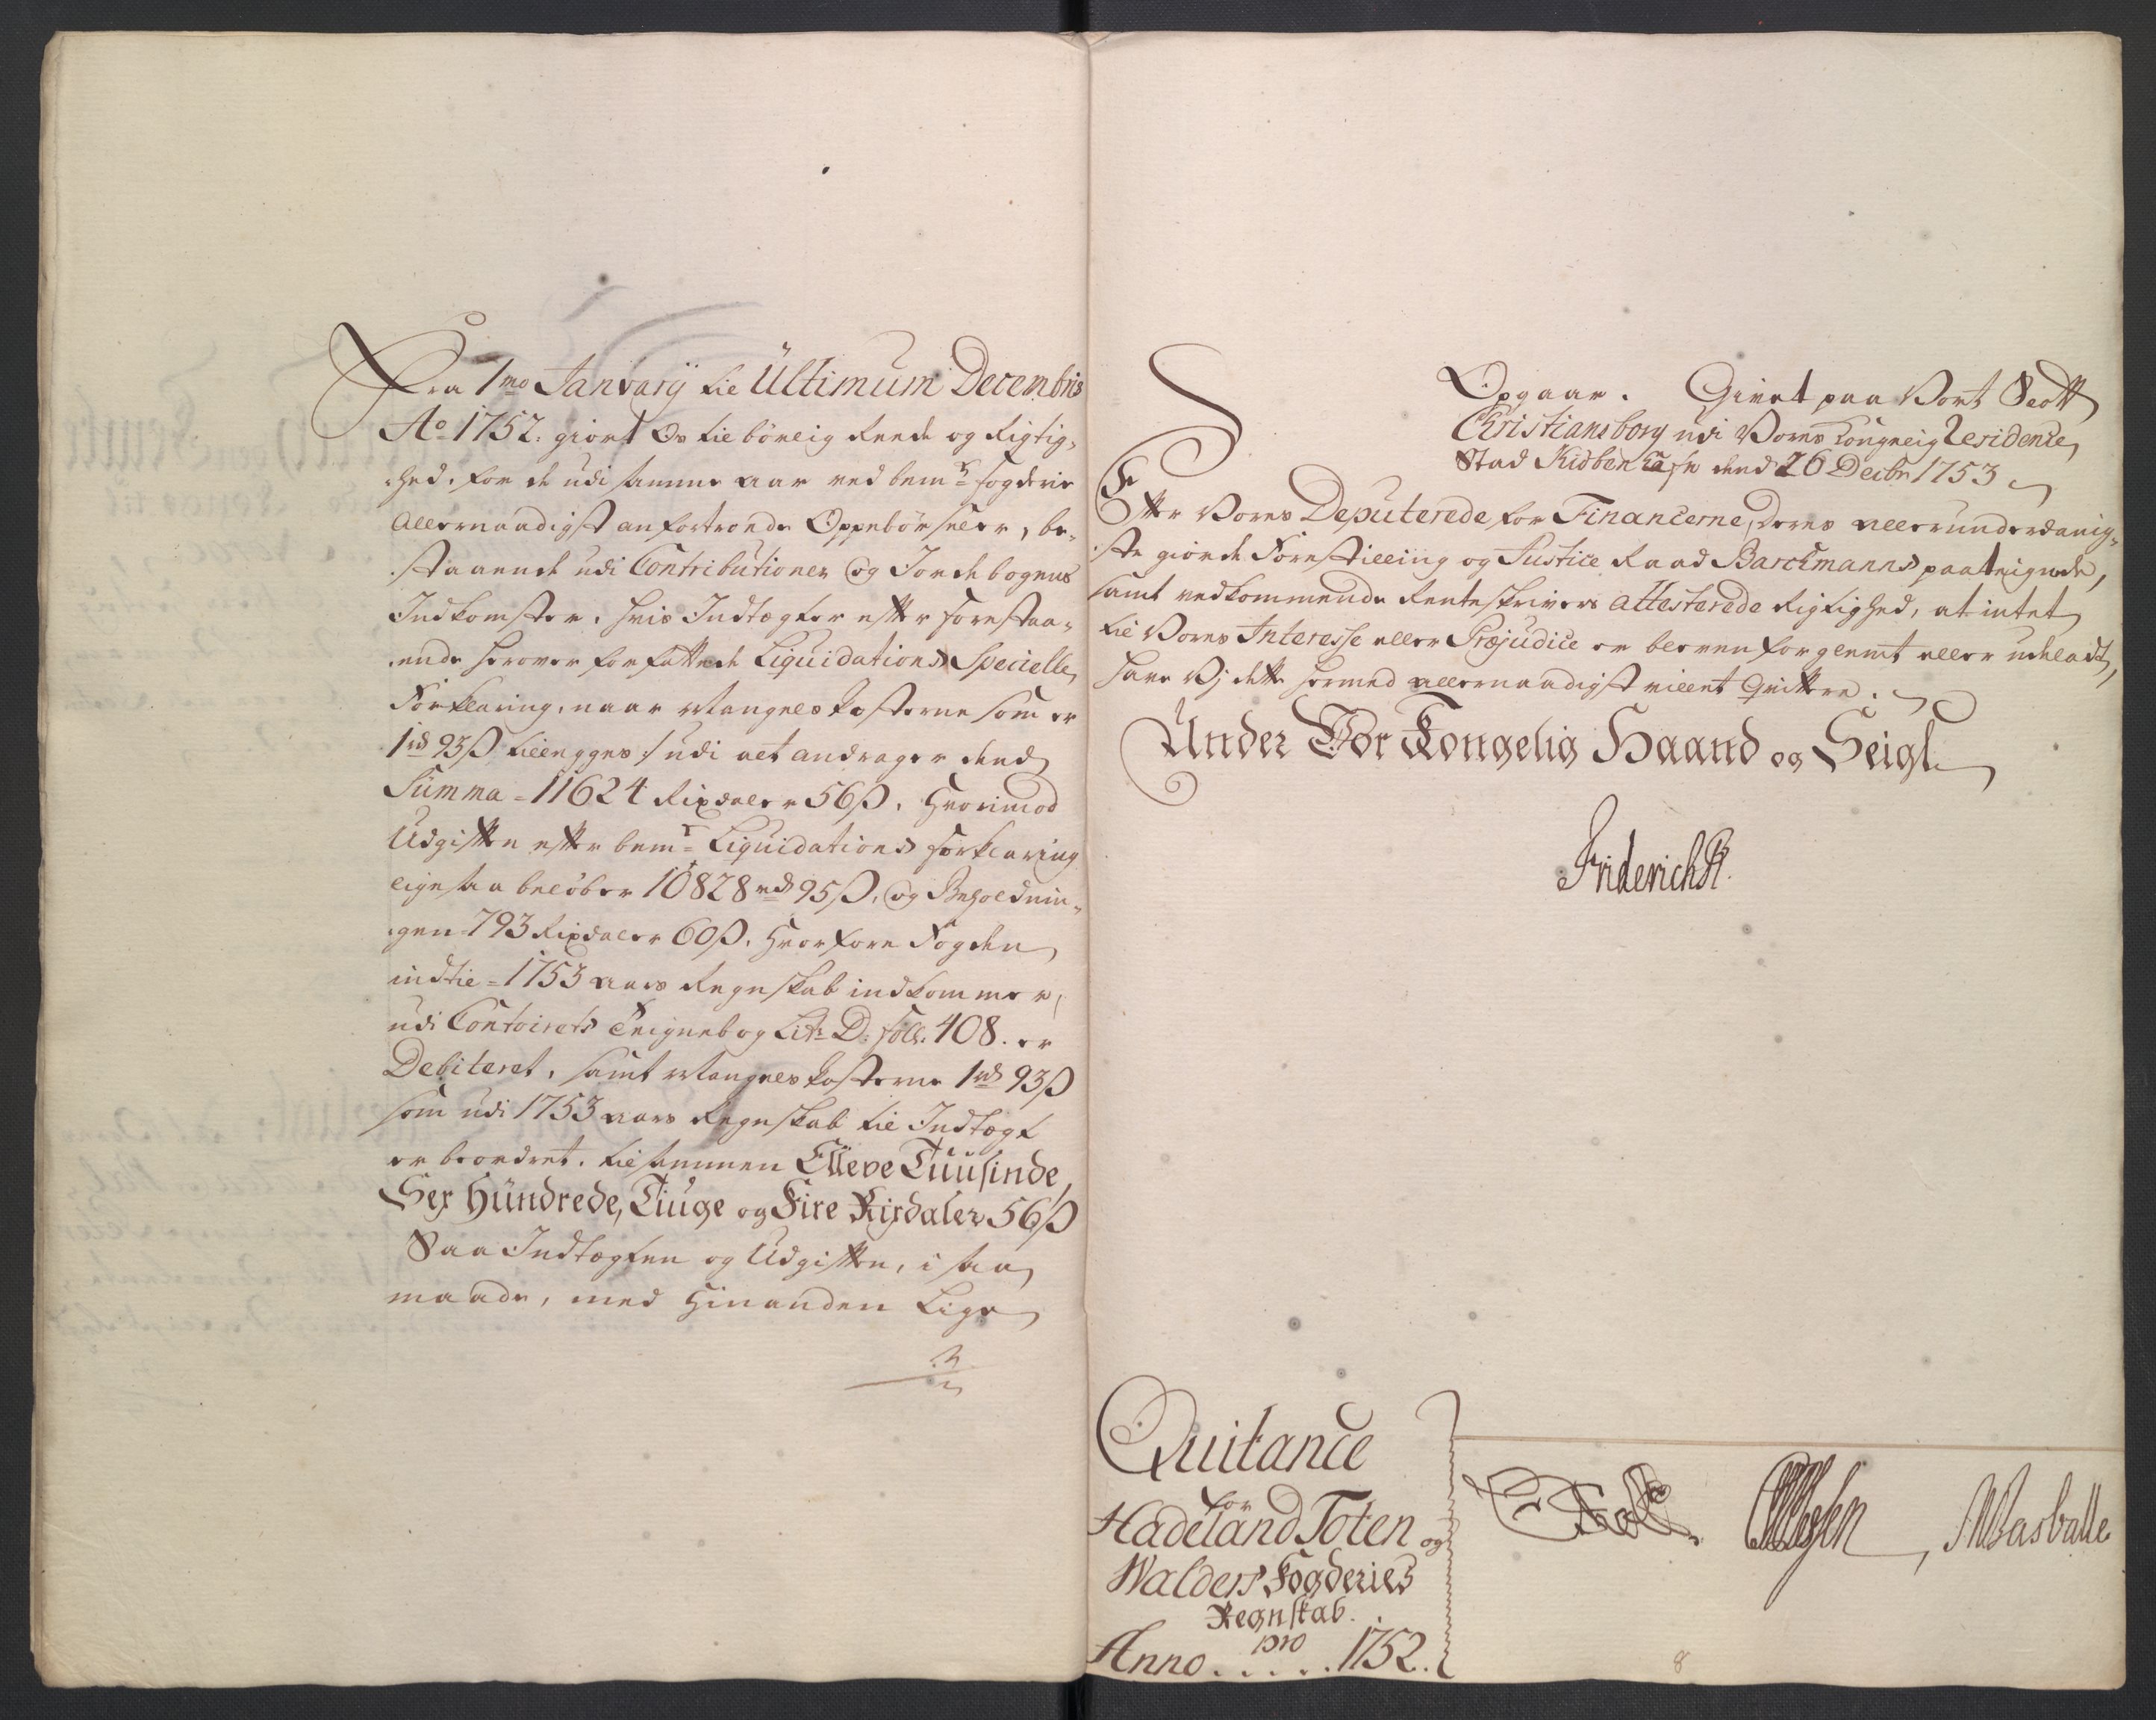 Fra 1mo Janvarij til Ultimum Decembris
Ao 1752. giort Os tilbörlig Reede og Rigtig-
hed, for de udi samme aar ved bemte Fogderie
Allernaadigst anfortroede Oppebörseler, be-
staaende udi Contributioner og Jordebogens
Indkomster. hvis Indtægter efter forestaa-
ende herover forfattede Liquidations Specielle
Forklaring, naar Mangels Posterne som er
1 rd 93 ß tillegges :/ udi alt andrager dend
Summa = 11624 Rixdaler 56 ß. Hvorimod
Udgiften efter bemte Liquidations Forklaring
ligesaa beløber 10828 rd 95 ß, og Beholdnin-
gen = 793 Rixdaler 60 ß. Hvorfore Fogden
indtil = 1753 aars Regnskab indkommer,
udi Contoirets Teignebog Litr D. foll. 408. er
Debiteret, samt Mangels Posterne 1 rd 93 ß
som udi 1753 aars Regnskab til Indtægt
er beordret. tilsammen Elleve Tuusinde,
Sex Hundrede, Tiuge og Fire Rixdaler 56 ß
Saa Indtægten og Udgiften, i saa
maade, med Hinanden Lige
Opgaar. Givet paa Vort Slott
Christiansborg udi Vores Kongelig Residence
Stad Kiöbenhafn dend 26 Decbr 1753
Efter Vores Deputerede for Financerne, deres allerunderdanig-
ste giorde Forestilling og Justice Raad Barchmanns paateignede,
samt vedkommende Renteskrivers Attesterede Rigtighed, at intet
til Vores Interesse eller Præjudice er bleven forglemt eller udeladt,
have Vj dette hermed allernaadigst villet Qvittere.
Under Vor Kongelig Haand og Seigl.
Friderich R.
Quitance
for
Hadeland Toten og
Walders Fogderies
Regnskab.
pro
Anno . . . . . 1752.
8